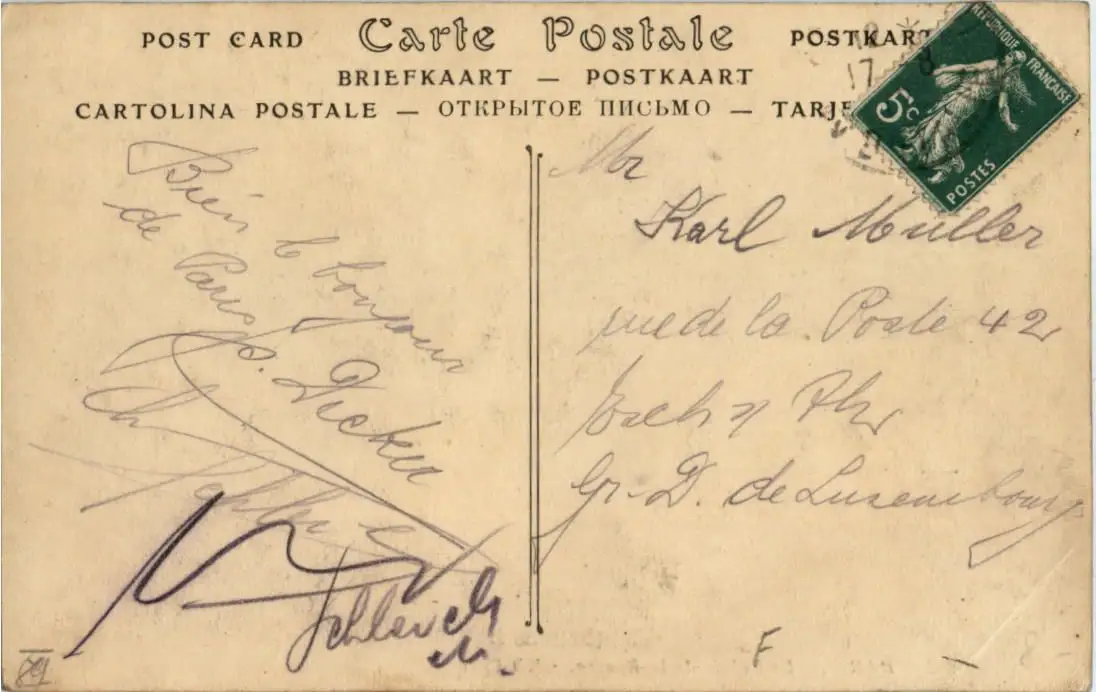 POST CARD Carte Postale POSTKART
BRIEFKAART — POSTKAART
CARTOLINA POSTALE — ОТКРЫТОЕ ПИСЬМО — TARJE
RÉPUBLIQUE FRANÇAISE
5c
POSTES
17 8
Bien le bonjour
de Paris
P. Decker
Mr
Karl Muller
rue de la Poste 42
Esch s/ Alz
Gr. D. de Luxembourg
Schleich
F
89